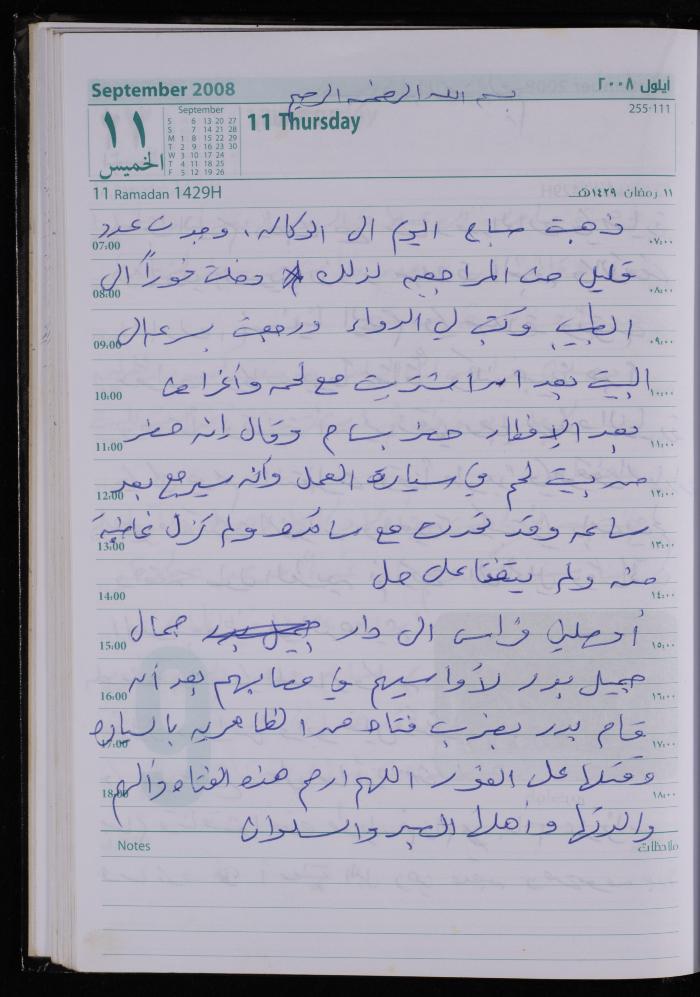 September 2008
أيلول ٢٠٠٨
بسم الله الرحمن الرحيم
١١
الخميس
September
S 6 13 20 27
S 7 14 21 28
M 1 8 15 22 29
T 2 9 16 23 30
W 3 10 17 24
T 4 11 18 25
F 5 12 19 26
11 Thursday
255-111
11 Ramadan 1429H
١١ رمضان ١٤٢٩هـ
ذهبت صباح اليوم الى الوكاله، وجدت عدد
07:00 ٠٧:٠٠
قليل من المراجعين لذلك دخلت فوراً الى
08:00 ٠٨:٠٠
الطبيب وكتب لي الدواء ورجعت بسرعه الى
09:00 ٠٩:٠٠
البيت بعد ان اشتريت لحمه وأغراض
10:00 ١٠:٠٠
بعد الإفطار حضر بسام وقال انه حضر
11:00 ١١:٠٠
من بيت لحم في سيارة العمل وأنه سيرجع بعد
12:00 ١٢:٠٠
ساعه وقد تحدث مع ولم تزل غاضبة
13:00 ١٣:٠٠
منه ولم يتفقا على حل
14:00 ١٤:٠٠
أوصلني فراس الى دار جمال
15:00 ١٥:٠٠
جميل بدر لأواسيهم في مصابهم بعد أن
16:00 ١٦:٠٠
قام بدر بضرب فتاه من الظاهريه بالسياره
17:00 ١٧:٠٠
وقتلها على الفور اللهم ارحم هذه الفتاه وألهم
18:00 ١٨:٠٠
والديها وأهلها الصبر والسلوان
Notes
ملاحظات